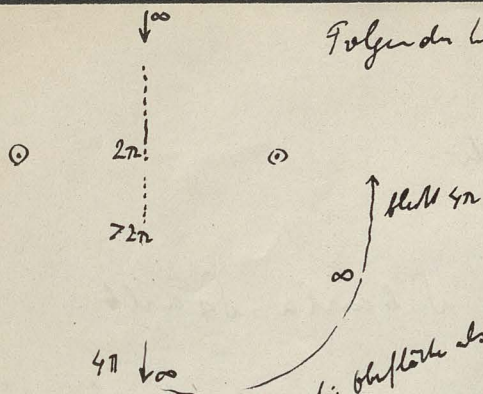 ∞
Folgender
2π
>2π
bleibt 4π
∞
4π
∞
Oberfläche als